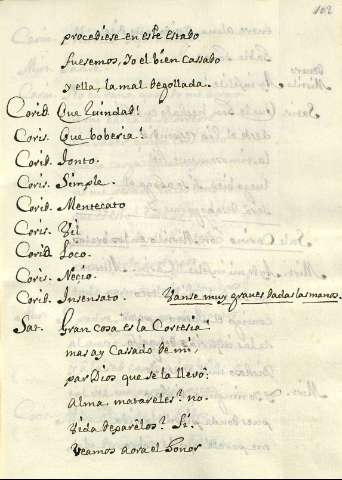 102
procediese en este estado
fuesemos, Yo el bien Cassado
y ella, la mal degollada.
Corid. Que Ruindad!
Coris. Que boberia!
Corid. Tonto.
Coris. Simple.
Corid. Mentecato
Coris. Vil
Corid. Loco.
Coris. Neçio.
Corid. Insensato. Vanse muy graves dadas las manos.
Sat. Gran Cosa es la Cortesia!
mas ay Cassado de mi,
par Dios que se la llevó:
Alma matareles? no.
Vida dexarélos? Si.
Veamos aora el honor